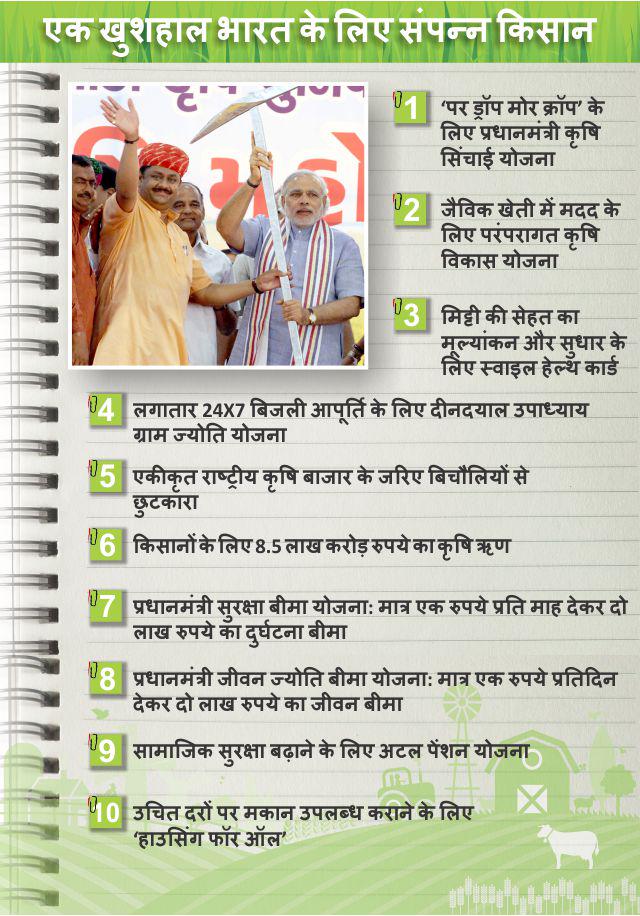 एक खुशहाल भारत के लिए संपन्न किसान
1 ‘पर ड्रॉप मोर क्रॉप’ के
लिए प्रधानमंत्री कृषि
सिंचाई योजना
2 जैविक खेती में मदद के
लिए परंपरागत कृषि
विकास योजना
3 मिट्टी की सेहत का
मूल्यांकन और सुधार के
लिए स्वाइल हेल्थ कार्ड
4 लगातार 24X7 बिजली आपूर्ति के लिए दीनदयाल उपाध्याय
ग्राम ज्योति योजना
5 एकीकृत राष्ट्रीय कृषि बाजार के जरिए बिचौलियों से
छुटकारा
6 किसानों के लिए 8.5 लाख करोड़ रुपये का कृषि ऋण
7 प्रधानमंत्री सुरक्षा बीमा योजना: मात्र एक रुपये प्रति माह देकर दो
लाख रुपये का दुर्घटना बीमा
8 प्रधानमंत्री जीवन ज्योति बीमा योजना: मात्र एक रुपये प्रतिदिन
देकर दो लाख रुपये का जीवन बीमा
9 सामाजिक सुरक्षा बढ़ाने के लिए अटल पेंशन योजना
10 उचित दरों पर मकान उपलब्ध कराने के लिए
‘हाउसिंग फॉर ऑल’